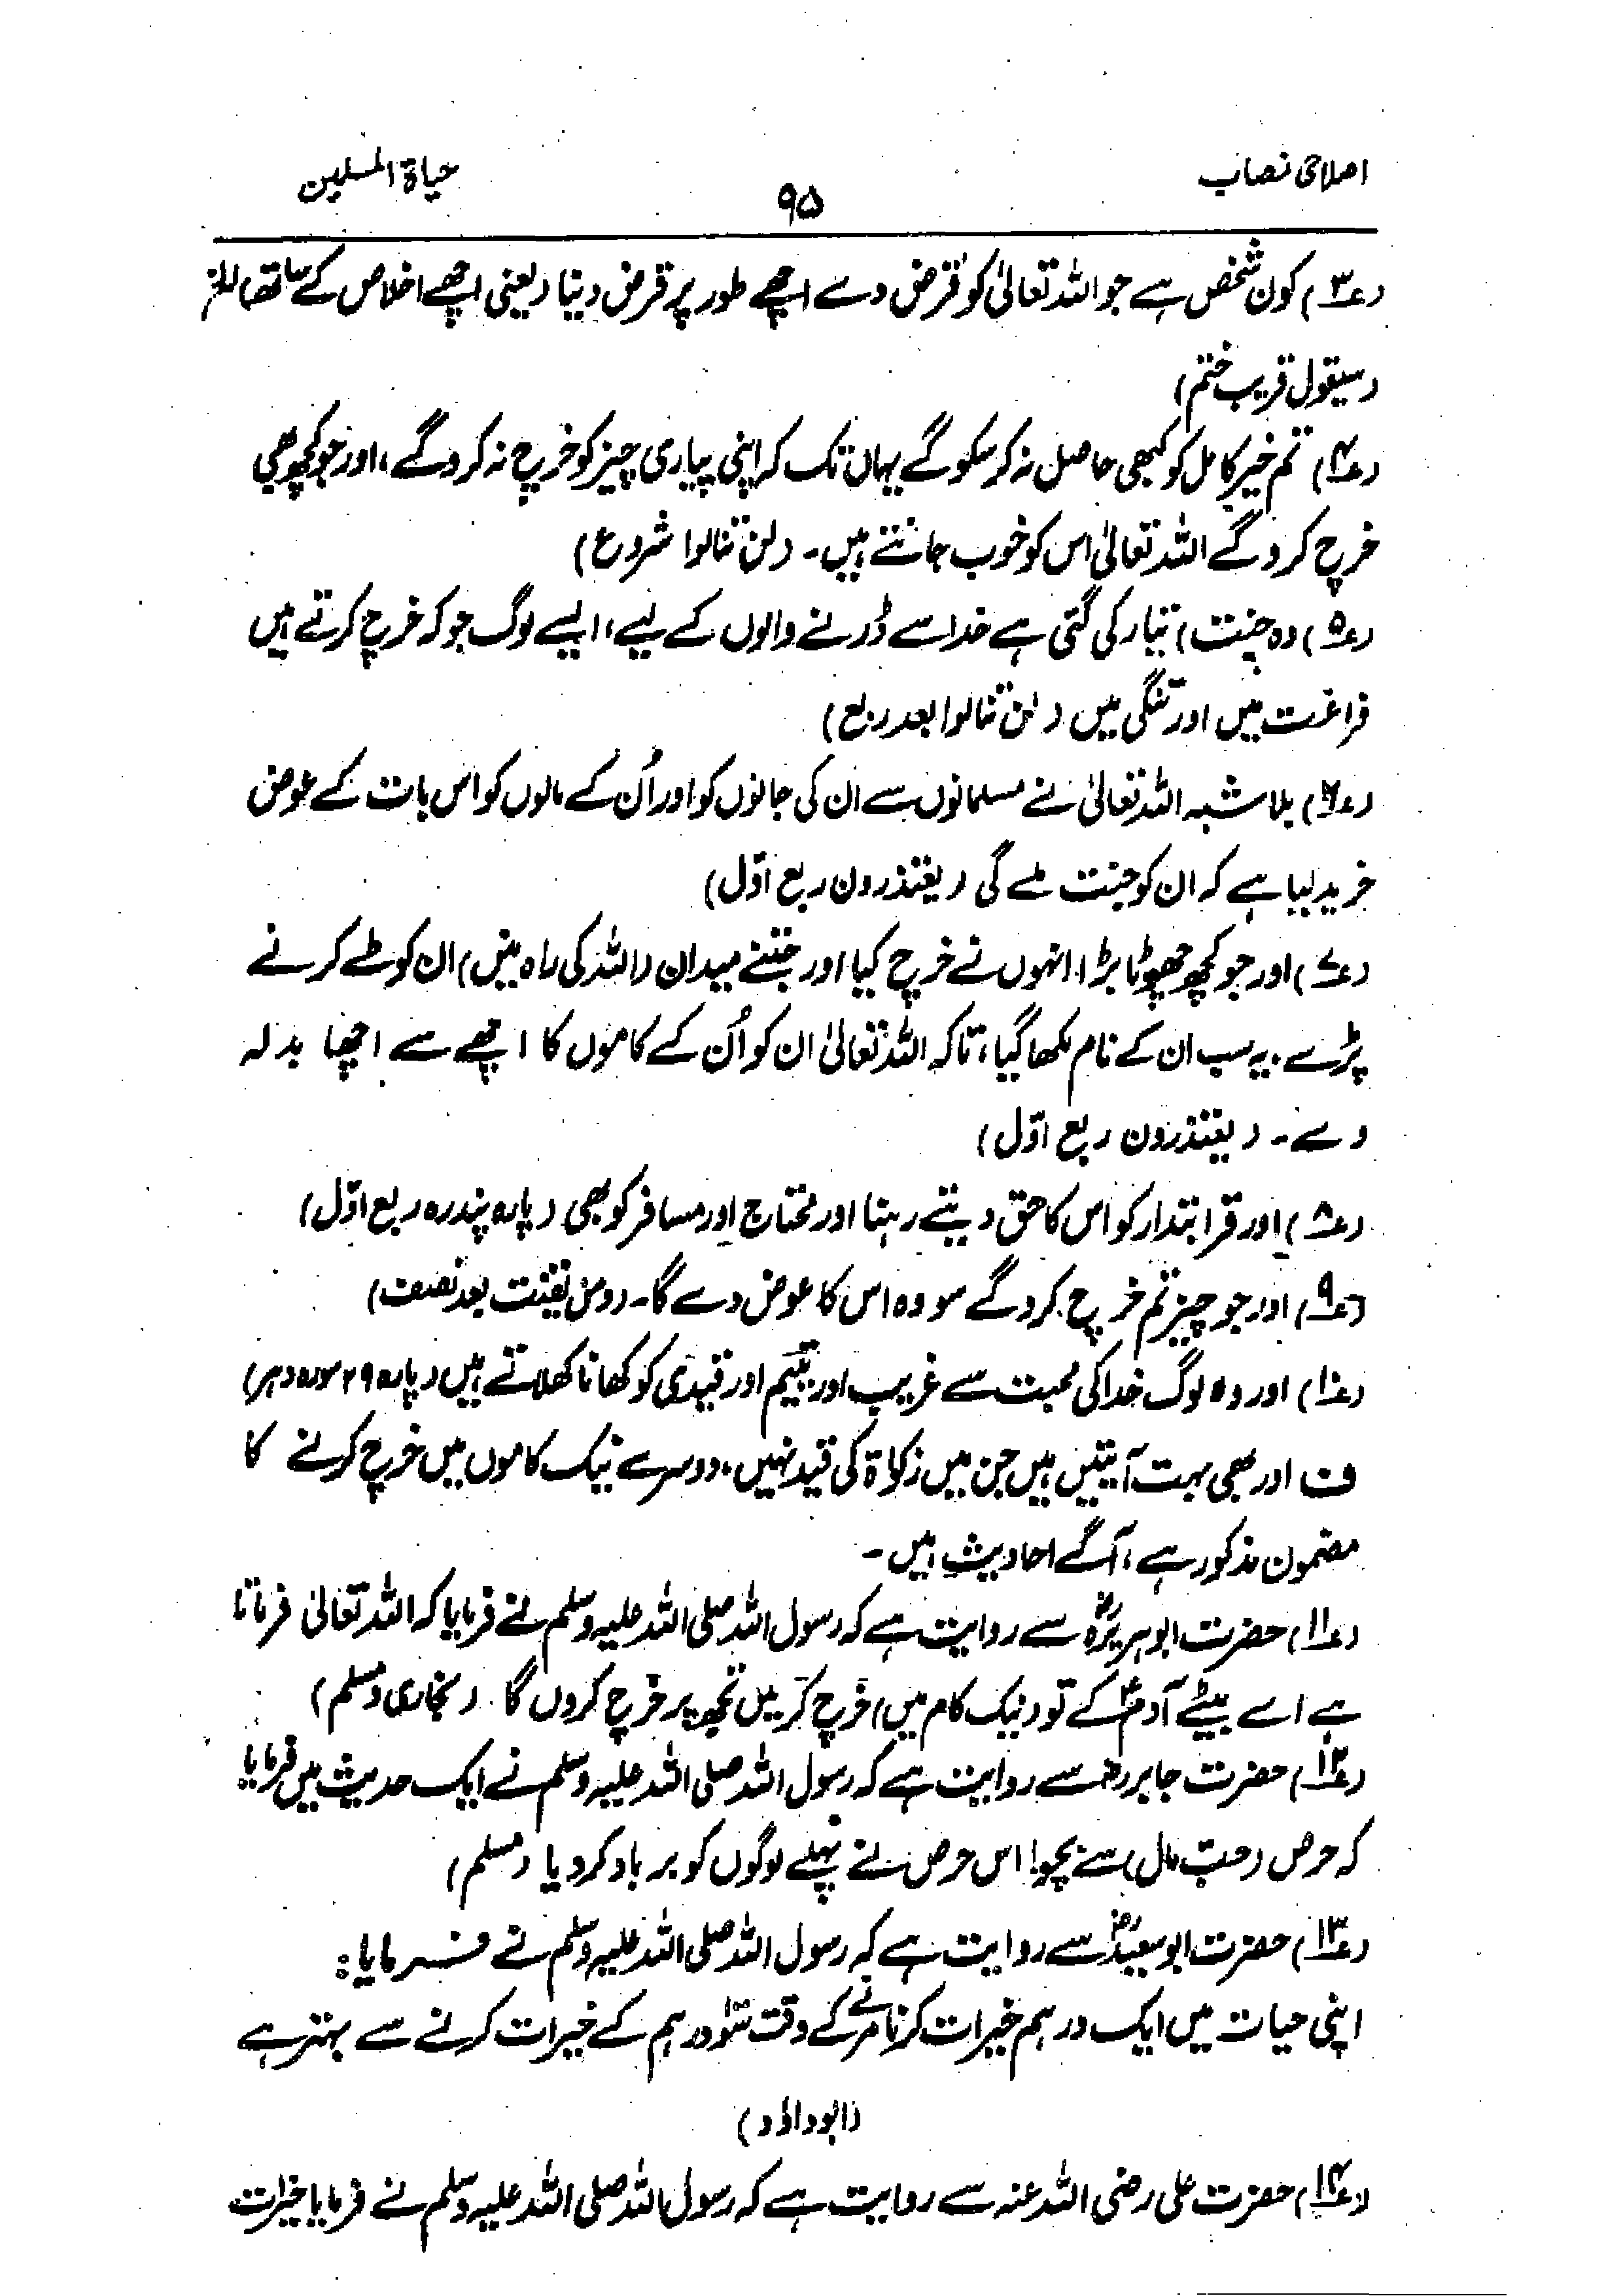 اصلاحی نصاب
۹۵
حیاۃ المسلمین
(ع۳) کون شخص ہے جو اللہ تعالیٰ کو قرض دے اچھے طور پر قرض دینا (یعنی اچھے اخلاص کے ساتھ) الخ
(سیقول قریب ختم)
(ع۴) تم خیر کامل کو کبھی حاصل نہ کر سکو گے یہاں تک کہ اپنی پیاری چیز کو خرچ نہ کرو گے، اور جو کچھ بھی
خرچ کرو گے اللہ تعالیٰ اس کو خوب جانتے ہیں۔ (لن تنالوا شروع)
(ع۵) (وہ جنت) تیار کی گئی ہے خدا سے ڈرنے والوں کے لیے، ایسے لوگ جو کہ خرچ کرتے ہیں
فراغت میں اور تنگی میں (لن تنالوا بعد ربع)
(ع۶) بلا شبہ اللہ تعالیٰ نے مسلمانوں سے ان کی جانوں کو اور اُن کے مالوں کو اس بات کے عوض
خرید لیا ہے کہ ان کو جنت ملے گی (یعتذرون ربع اوّل)
(ع۷) اور جو کچھ چھوٹا بڑا انہوں نے خرچ کیا اور جتنے میدان (اللہ کی راہ میں) ان کو طے کرنے
پڑے، یہ سب ان کے نام لکھا گیا، تاکہ اللہ تعالیٰ ان کو اُن کے کاموں کا اچھے سے اچھا بدلہ
دے۔ (یعتذرون ربع اوّل)
(ع۸) اور قرابتدار کو اس کا حق دیتے رہنا اور محتاج اور مسافر کو بھی (پارہ پندرہ ربع اوّل)
(ع۹) اور جو چیز تم خرچ کرو گے سو وہ اس کا عوض دے گا۔ (ومن یقنت بعد نصف)
(ع۱۰) اور وہ لوگ خدا کی محبت سے غریب اور یتیم اور قیدی کو کھانا کھلاتے ہیں (پارہ ۲۹ سورہ دہر)
ف اور بھی بہت آیتیں ہیں جن میں زکوٰۃ کی قید نہیں، دوسرے نیک کاموں میں خرچ کرنے کا
مضمون مذکور ہے، آگے احادیث ہیں۔
(ع۱۱) حضرت ابوہریرہؓ سے روایت ہے کہ رسول اللہ صلی اللہ علیہ وسلم نے فرمایا کہ اللہ تعالیٰ فرماتا
ہے اے بیٹے آدمؑ کے تو (نیک کام میں) خرچ کر میں تجھ پر خرچ کروں گا۔ (بخاری و مسلم)
(ع۱۲) حضرت جابرؓ سے روایت ہے کہ رسول اللہ صلی اللہ علیہ وسلم نے ایک حدیث میں فرمایا
کہ حرص (حب مال) سے بچو! اس حرص نے پہلے لوگوں کو برباد کر دیا (مسلم)
(ع۱۳) حضرت ابوسعیدؓ سے روایت ہے کہ رسول اللہ صلی اللہ علیہ وسلم نے فرمایا:
اپنی حیات میں ایک درہم خیرات کرنا مرنے کے وقت سَو درہم کے خیرات کرنے سے بہتر ہے
(ابوداؤد)
(ع۱۴) حضرت علی رضی اللہ عنہ سے روایت ہے کہ رسول اللہ صلی اللہ علیہ وسلم نے فرمایا خیرات